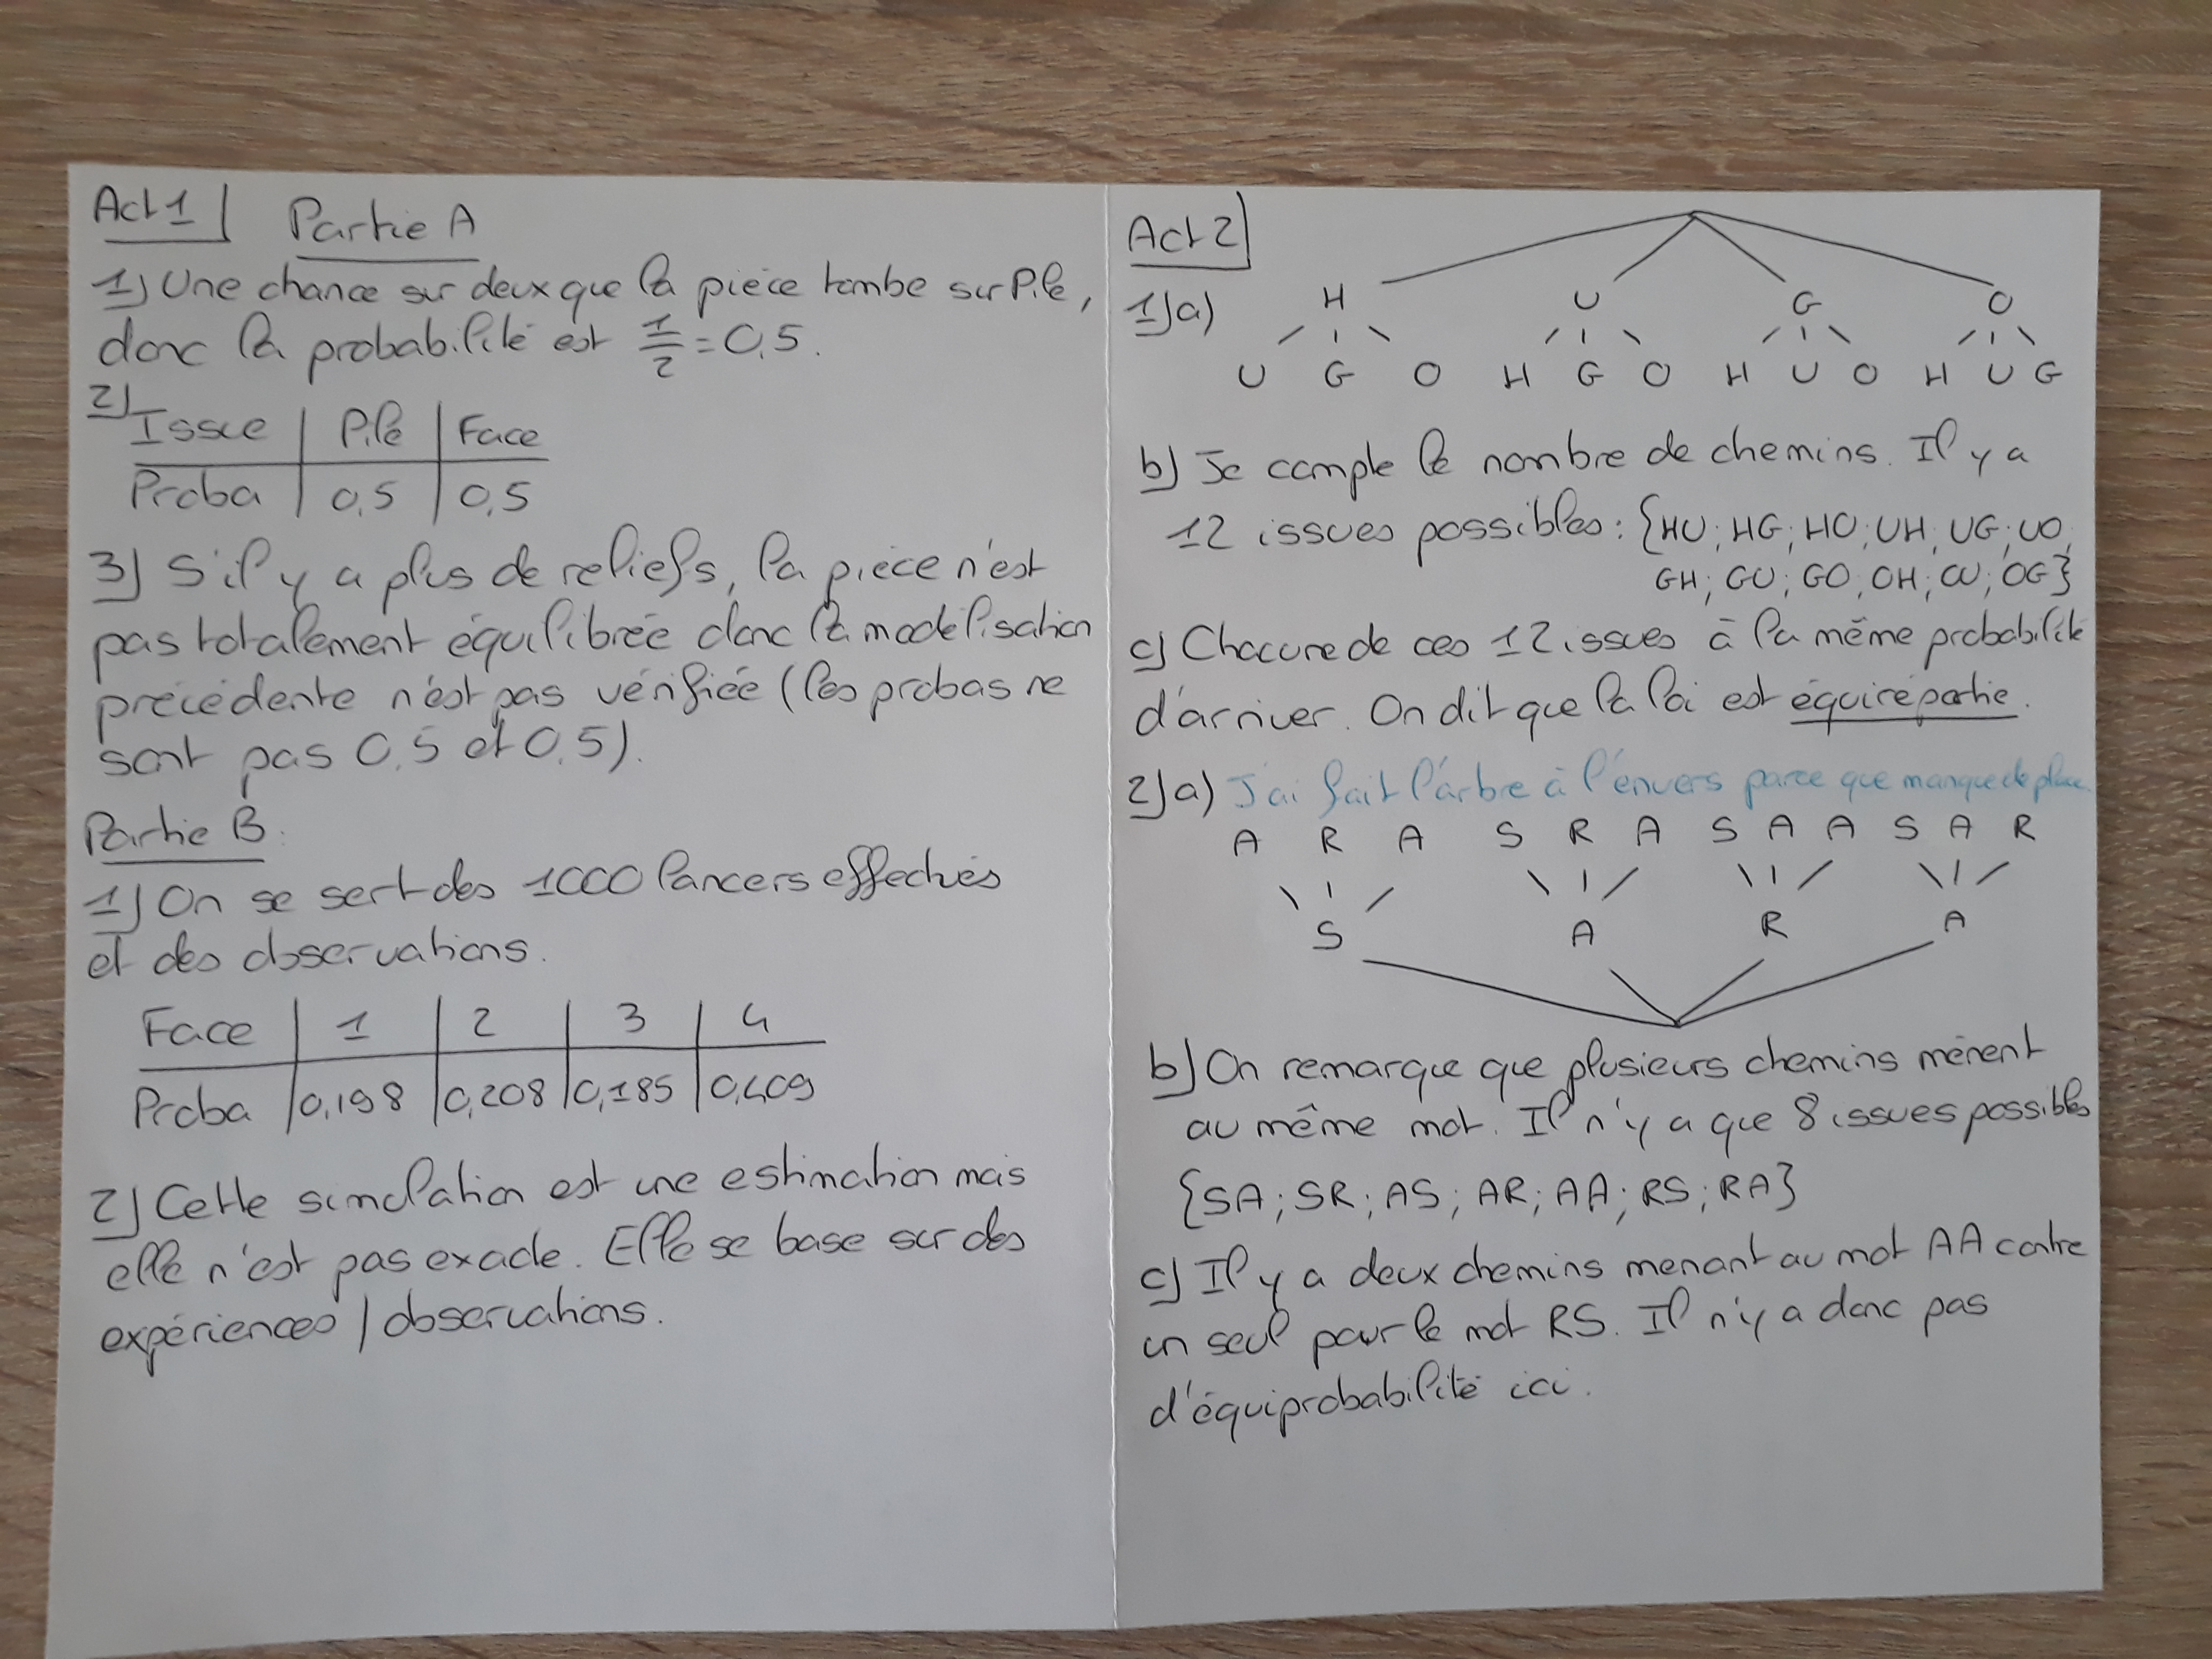 Act 1 Partie A
1) Une chance sur deux que la pièce tombe sur Pile,
donc la probabilité est 1/2 = 0,5.
2)
Issue | Pile | Face
Proba | 0,5 | 0,5
3) S'il y a plus de reliefs, la pièce n'est
pas totalement équilibrée donc la modélisation
précédente n'est pas vérifiée (les probas ne
sont pas 0,5 et 0,5).
Partie B:
1) On se sert des 1000 lancers effectués
et des observations.
Face | 1 | 2 | 3 | 4
Proba | 0,198 | 0,208 | 0,185 | 0,409
2) Cette simulation est une estimation mais
elle n'est pas exacte. Elle se base sur des
expériences / observations.
Act 2
1) a)
H U G O
U G O H G O H U O H U G
b) Je compte le nombre de chemins. Il y a
12 issues possibles : {HU ; HG ; HO ; UH ; UG ; UO ;
GH ; GU ; GO ; OH ; OU ; OG}
c) Chacune de ces 12 issues à la même probabilité
d'arriver. On dit que la loi est équirépartie.
2) a) J'ai fait l'arbre à l'envers parce que manque de place.
A R A S R A S A A S A R
S A R A
b) On remarque que plusieurs chemins mènent
au même mot. Il n'y a que 8 issues possibles
{SA ; SR ; AS ; AR ; AA ; RS ; RA}
c) Il y a deux chemins menant au mot AA contre
un seul pour le mot RS. Il n'y a donc pas
d'équiprobabilité ici.